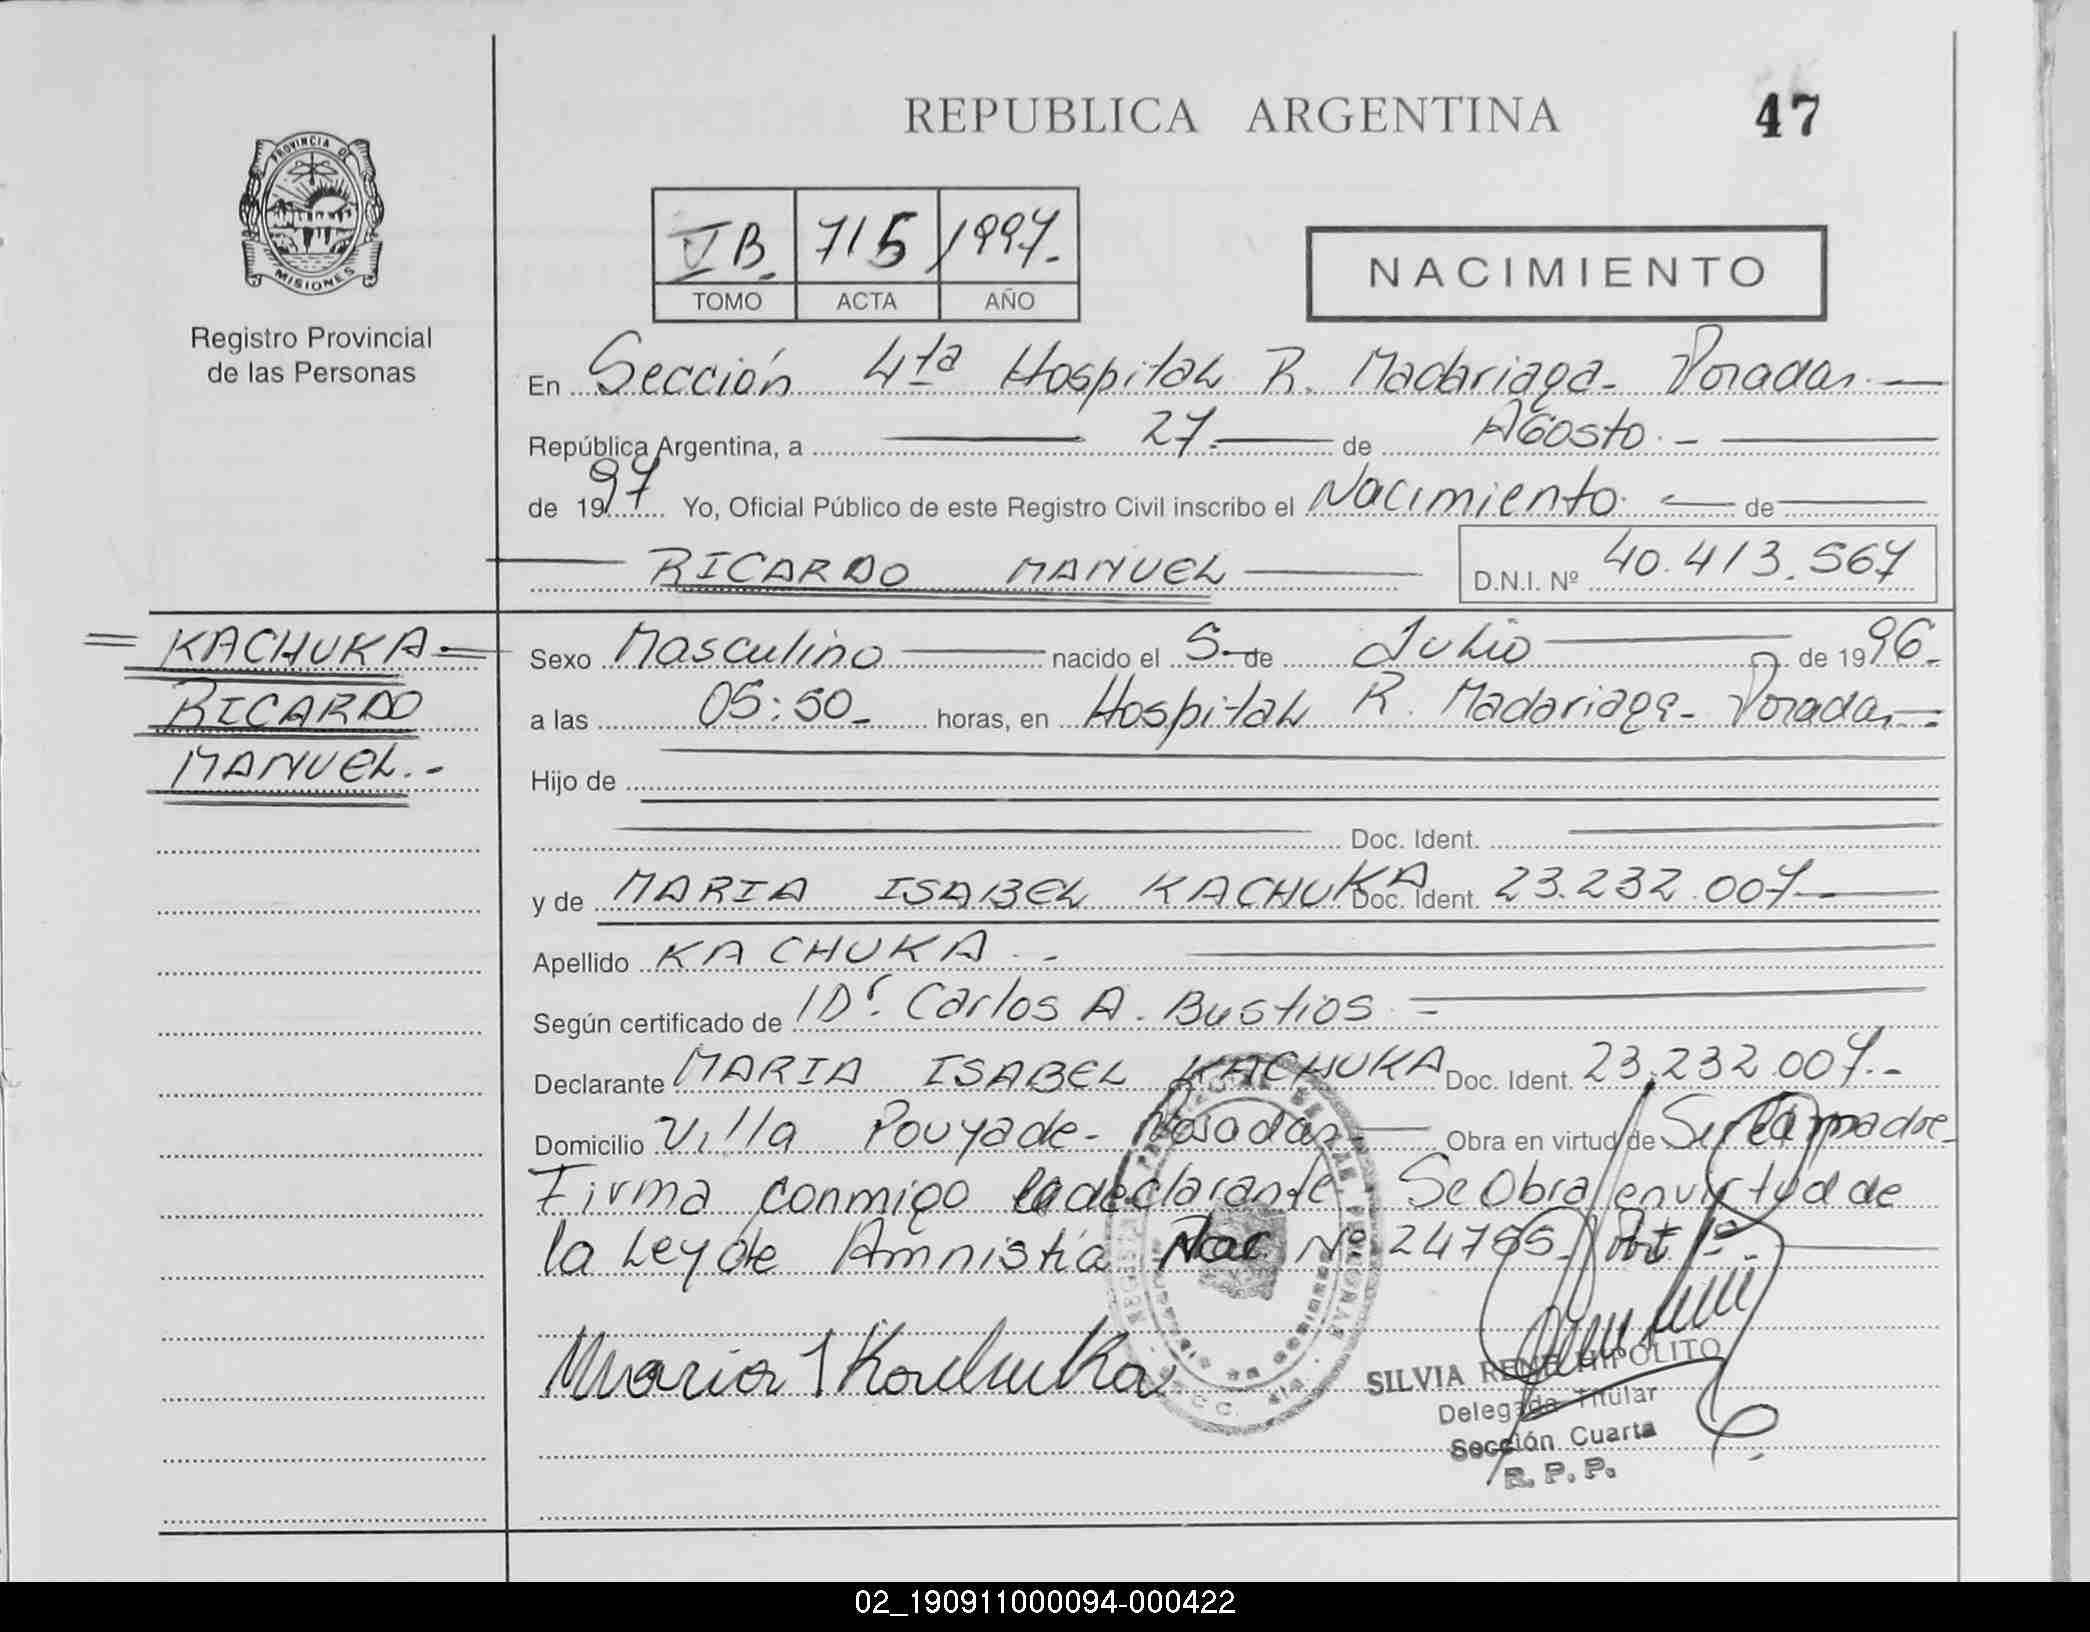 REPUBLICA ARGENTINA
47
PROVINCIA DE
MISIONES
Registro Provincial
de las Personas
B. 715 1997.-
TOMO ACTA AÑO
NACIMIENTO
En Sección 4ta Hospital R. Madariaga- Posadas.-
República Argentina, a 27.- de Agosto.-
de 1997 Yo, Oficial Público de este Registro Civil inscribo el Nacimiento.- de
RICARDO MANUEL
D.N.I. Nº 40.413.567
=KACHUKA=
RICARDO
MANUEL.-
Sexo Masculino nacido el 5- de Julio de 1996.-
a las 05:50- horas, en Hospital R. Madariaga- Posadas-
Hijo de
Doc. Ident.
y de MARIA ISABEL KACHUKA Doc. Ident. 23.232.007-
Apellido KACHUKA.-
Según certificado de Dr. Carlos A. Bustios.-
Declarante MARIA ISABEL KACHUKA Doc. Ident. 23.232.007.-
Domicilio Villa Pouyade- Posadas- Obra en virtud de Ser la madre-
Firma conmigo la declarante. Se Obra en virtud de
la Ley de Amnistia Nac Nº 24755. Art 1º.-
Maria I Kachuka
SILVIA RENE HIPOLITO
Delegada Titular
Sección Cuarta
R. P. P.
02_190911000094-000422